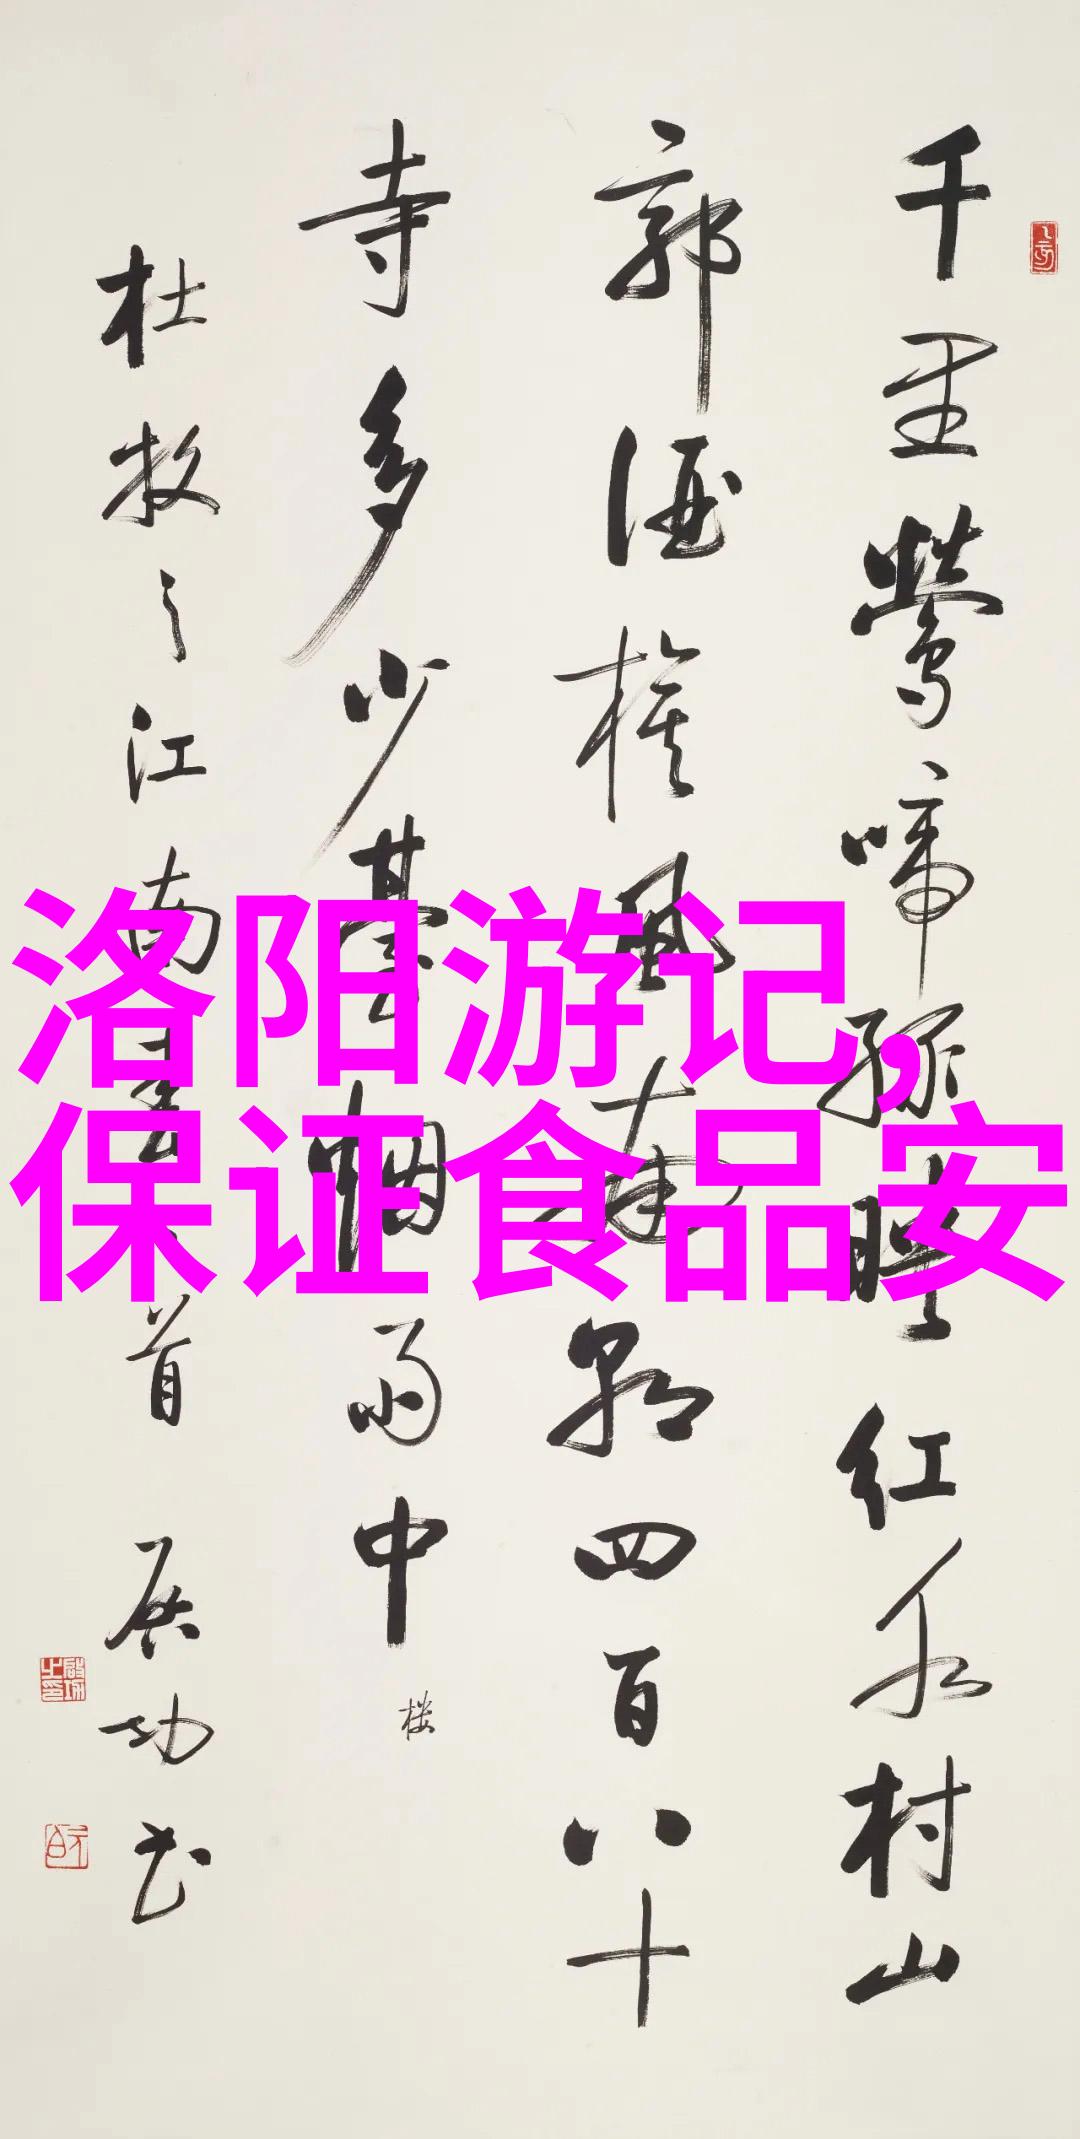 千里莺啼绿暎红水村山
郭酒旗风南朝四百八十
寺多少台烟雨中
楼
杜牧之江南春一首 启功书
洛阳游记,
保证食品安